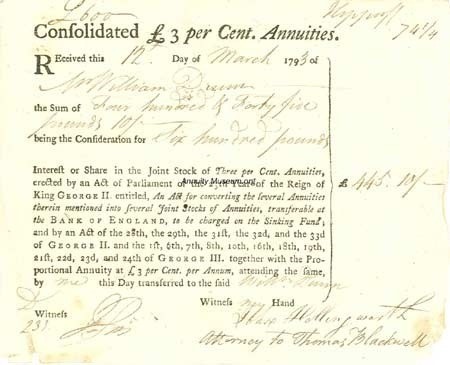 £600
74 1/4
Consolidated £3 per Cent. Annuities.
Received this 12 Day of March 1793 of
Mr William Dunn
the Sum of Four hundred & Forty five
pounds 10/-
being the Consideration for Six hundred pounds
Interest or Share in the Joint Stock of Three per Cent. Annuities,
erected by an Act of Parliament of the 25th Year of the Reign of
King GEORGE II. entitled, An Act for converting the several Annuities
therein mentioned into several Joint Stocks of Annuities, transferable at
the BANK OF ENGLAND, to be charged on the Sinking Fund;
and by an Act of the 28th, the 29th, the 31st, the 32d, and the 33d
of GEORGE II. and the 1st, 6th, 7th, 8th, 10th, 16th, 18th, 19th,
21st, 22d, 23d, and 24th of GEORGE III. together with the Pro-
portional Annuity at £3 per Cent. per Annum, attending the same,
by me this Day transferred to the said Willm. Dunn
£ 445.10/-
Annuity Museum.org
Witness my Hand
Witness
Isaac Hollingworth
231
Attorney to Thomas Blackwell